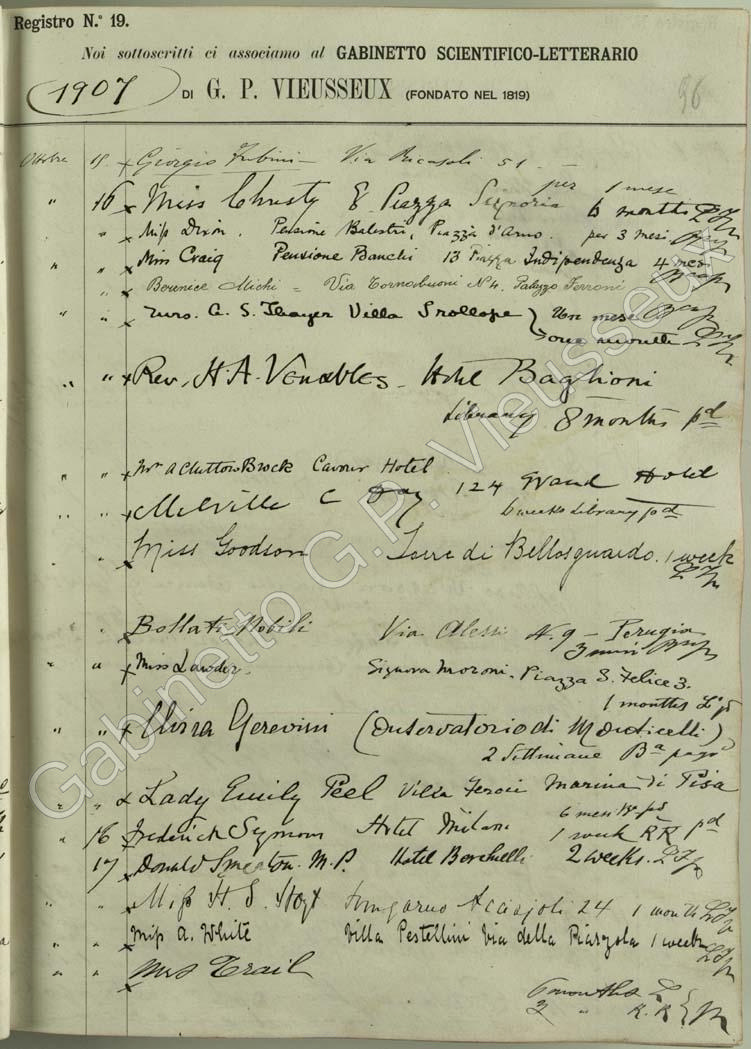 Registro N.° 19.
Noi sottoscritti ci associamo al GABINETTO SCIENTIFICO-LETTERARIO
1907 DI G. P. VIEUSSEUX (FONDATO NEL 1819)
96
Ottobre 15. Giorgio Fubini – Via Ricasoli 51 –
per 1 mese
" 16 Miss Christy 8. Piazza Signoria 6 months
" Miss Dixon. Pensione Balestri, Piazza d'Arno. per 3 mesi
" " Miss Craig Pensione Banchi 13 Piazza Indipendenza 4 mesi
Berenice Michi = Via Tornabuoni N4. Palazzo Ferroni
" " Mrs. G. S. Thayer Villa Trollope } Un mese
one month
" " Rev. H. A. Venables – Hotel Baglioni
Library 8 months pd
" " A Clutton Brock Cavour Hotel
" " Melville C Day 124 Grand Hotel
6 weeks Library pd
Miss Goodson Torre di Bellosguardo. 1 week
Bollati Nobili Via Alessi N. 9 – Perugia
3 mesi
" " Miss Lawder. Signora Moroni. Piazza S. Felice 3.
1 months
" " Elvira Gerevini (Osservatorio di Monticelli)
2 Settimane Ba pago
" " Lady Emily Peel Villa Marina di Pisa
6 mesi pd
" 16 Frederick Symons Hotel Milano 1 week RR pd
17 Donald Smeaton. M.P. Hotel Berchielli 2 weeks.
" " Miss H. S. Hoyt Lungarno Acciajoli 24 1 month
" " Miss A. White Villa Pestellini Via della Piazzola 1 week
" " Miss Trail
6 months L
3 " R. R
Gabinetto G.P. Vieusseux